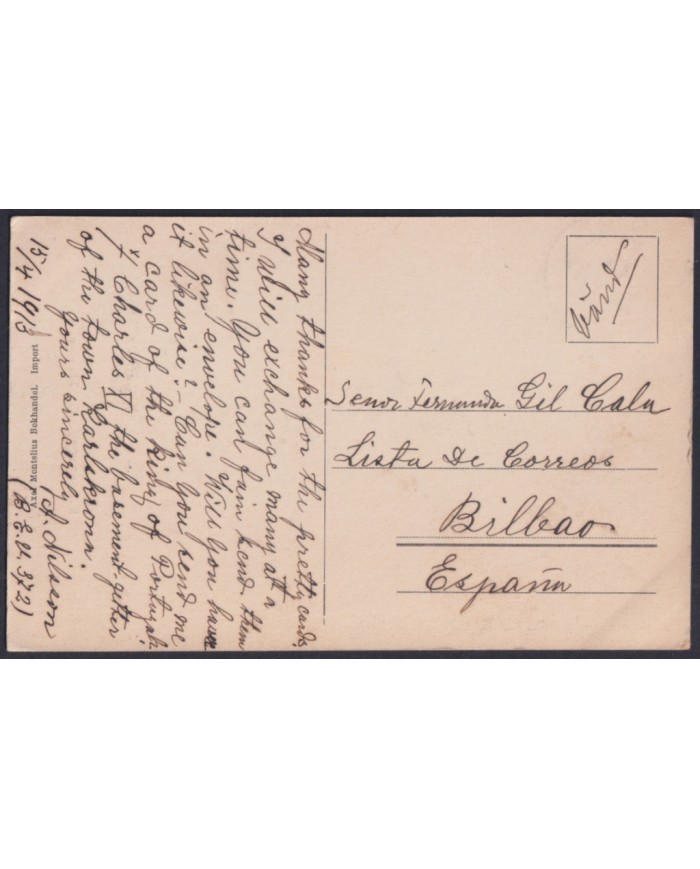 Many thanks for the pretty cards
I will exchange many at a
time. You can fain send them
in an envelore. Will you have
it likewise? - Can you send me
a card of the king of Portugal?
/ Charles XI the basement-getter
of the town Karlskrona.
yours sincerely
A. Nilsson
(B.E.V. 372)
15/4 1913
Axel Montelius Bokhandel. Import
Señor Fernando Gil Cala
Lista De Correos
Bilbao
España